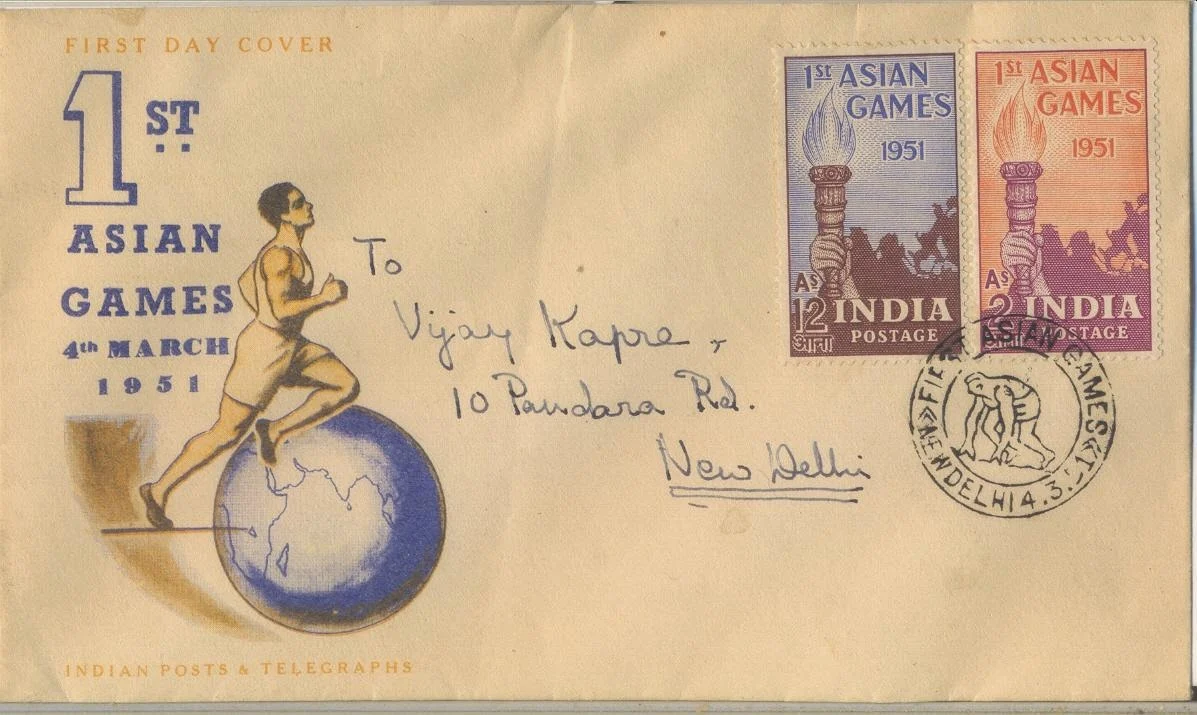 FIRST DAY COVER
1ST
ASIAN
GAMES
4th MARCH
1951
INDIAN POSTS & TELEGRAPHS
To
Vijay Kapre,
10 Pandara Rd.
New Delhi
1St ASIAN
GAMES
1951
As
12 INDIA
आना POSTAGE
1St ASIAN
GAMES
1951
As
2 INDIA
आना POSTAGE
FIRST ASIAN GAMES
NEW DELHI 4.3.51